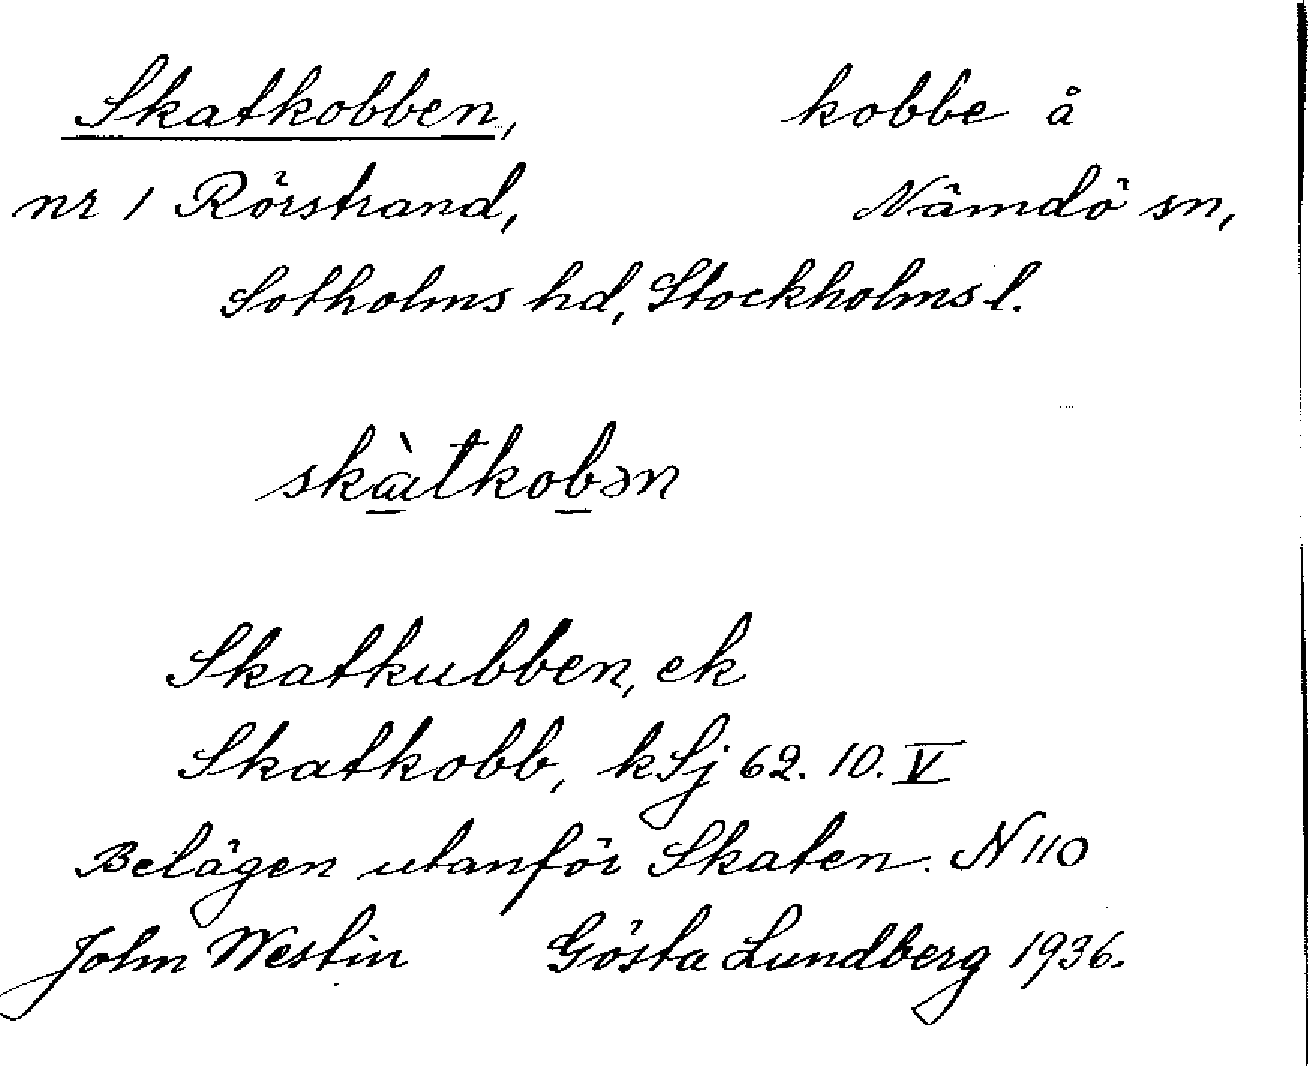 Skatkobben, kobbe å
nr 1 Rörstrand, Nämdö sn,
Sotholms hd, Stockholms l.
skàtkobən
Skatkubben, ek
Skatkobb, kSj 62. 10. V
Belägen utanför Skaten. N 110
John Westin Gösta Lundberg 1936.